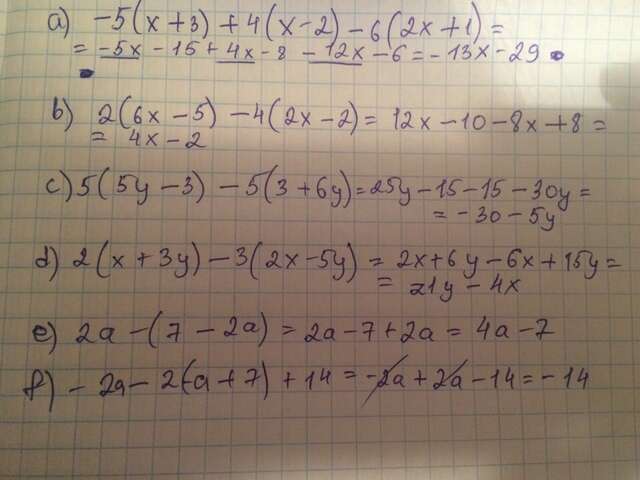 a) -5(x+3)+4(x-2)-6(2x+1)=
= -5x-15+4x-8-12x-6=-13x-29.
b) 2(6x-5)-4(2x-2)=12x-10-8x+8=
= 4x-2
c) 5(5y-3)-5(3+6y)=25y-15-15-30y=
= -30-5y
d) 2(x+3y)-3(2x-5y)=2x+6y-6x+15y=
= 21y-4x
e) 2a-(7-2a)=2a-7+2a=4a-7
f) -2a-2(-a+7)+14=-2a+2a-14=-14